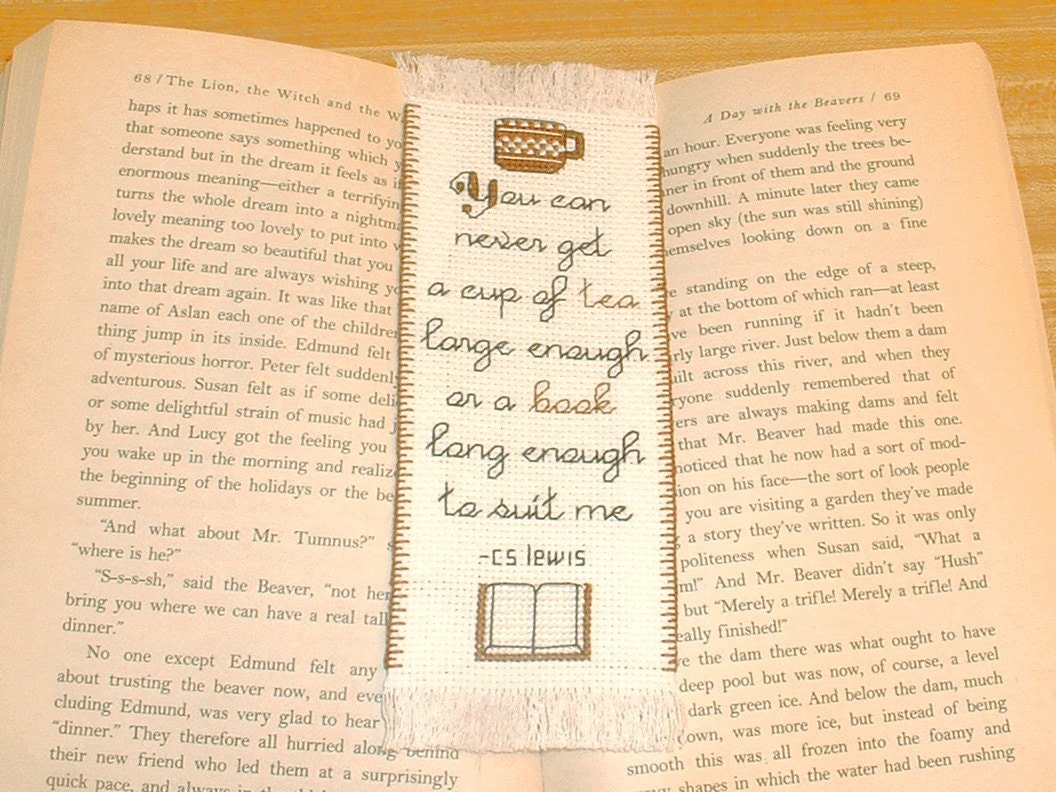 68 / The Lion, the Witch and the
haps it has sometimes happened to
that someone says something which
derstand but in the dream it feels as
enormous meaning—either a terrifying
turns the whole dream into a
lovely meaning too lovely to put into
makes the dream so beautiful that you
all your life and are always wishing
into that dream again. It was like that
name of Aslan each one of the
thing jump in its inside. Edmund felt
of mysterious horror. Peter felt
adventurous. Susan felt as if some
or some delightful strain of music had
by her. And Lucy got the feeling you
you wake up in the morning and
the beginning of the holidays or the
summer.
"And what about Mr. Tumnus?"
"where is he?"
"S-s-s-sh," said the Beaver, "not
bring you where we can have a real
dinner."
No one except Edmund felt any
about trusting the beaver now, and
cluding Edmund, was very glad to hear
"dinner." They therefore all hurried along behind
their new friend who led them at a surprisingly
quick pace, and always in the
You can
never get
a cup of tea
large enough
or a book
long enough
to suit me
-cs lewis
A Day with the Beavers / 69
an hour. Everyone was feeling very
hungry when suddenly the trees be-
in front of them and the ground
downhill. A minute later they came
open sky (the sun was still shining)
looking down on a fine
standing on the edge of a steep,
at the bottom of which ran—at least
been running if it hadn't been
large river. Just below them a dam
across this river, and when they
suddenly remembered that of
are always making dams and felt
that Mr. Beaver had made this one.
noticed that he now had a sort of mod-
on his face—the sort of look people
you are visiting a garden they've made
a story they've written. So it was only
politeness when Susan said, "What a
And Mr. Beaver didn't say "Hush"
but "Merely a trifle! Merely a trifle! And
finished!"
the dam there was what ought to have
deep pool but was now, of course, a level
dark green ice. And below the dam, much
was more ice, but instead of being
smooth this was all frozen into the foamy and
shapes in which the water had been rushing